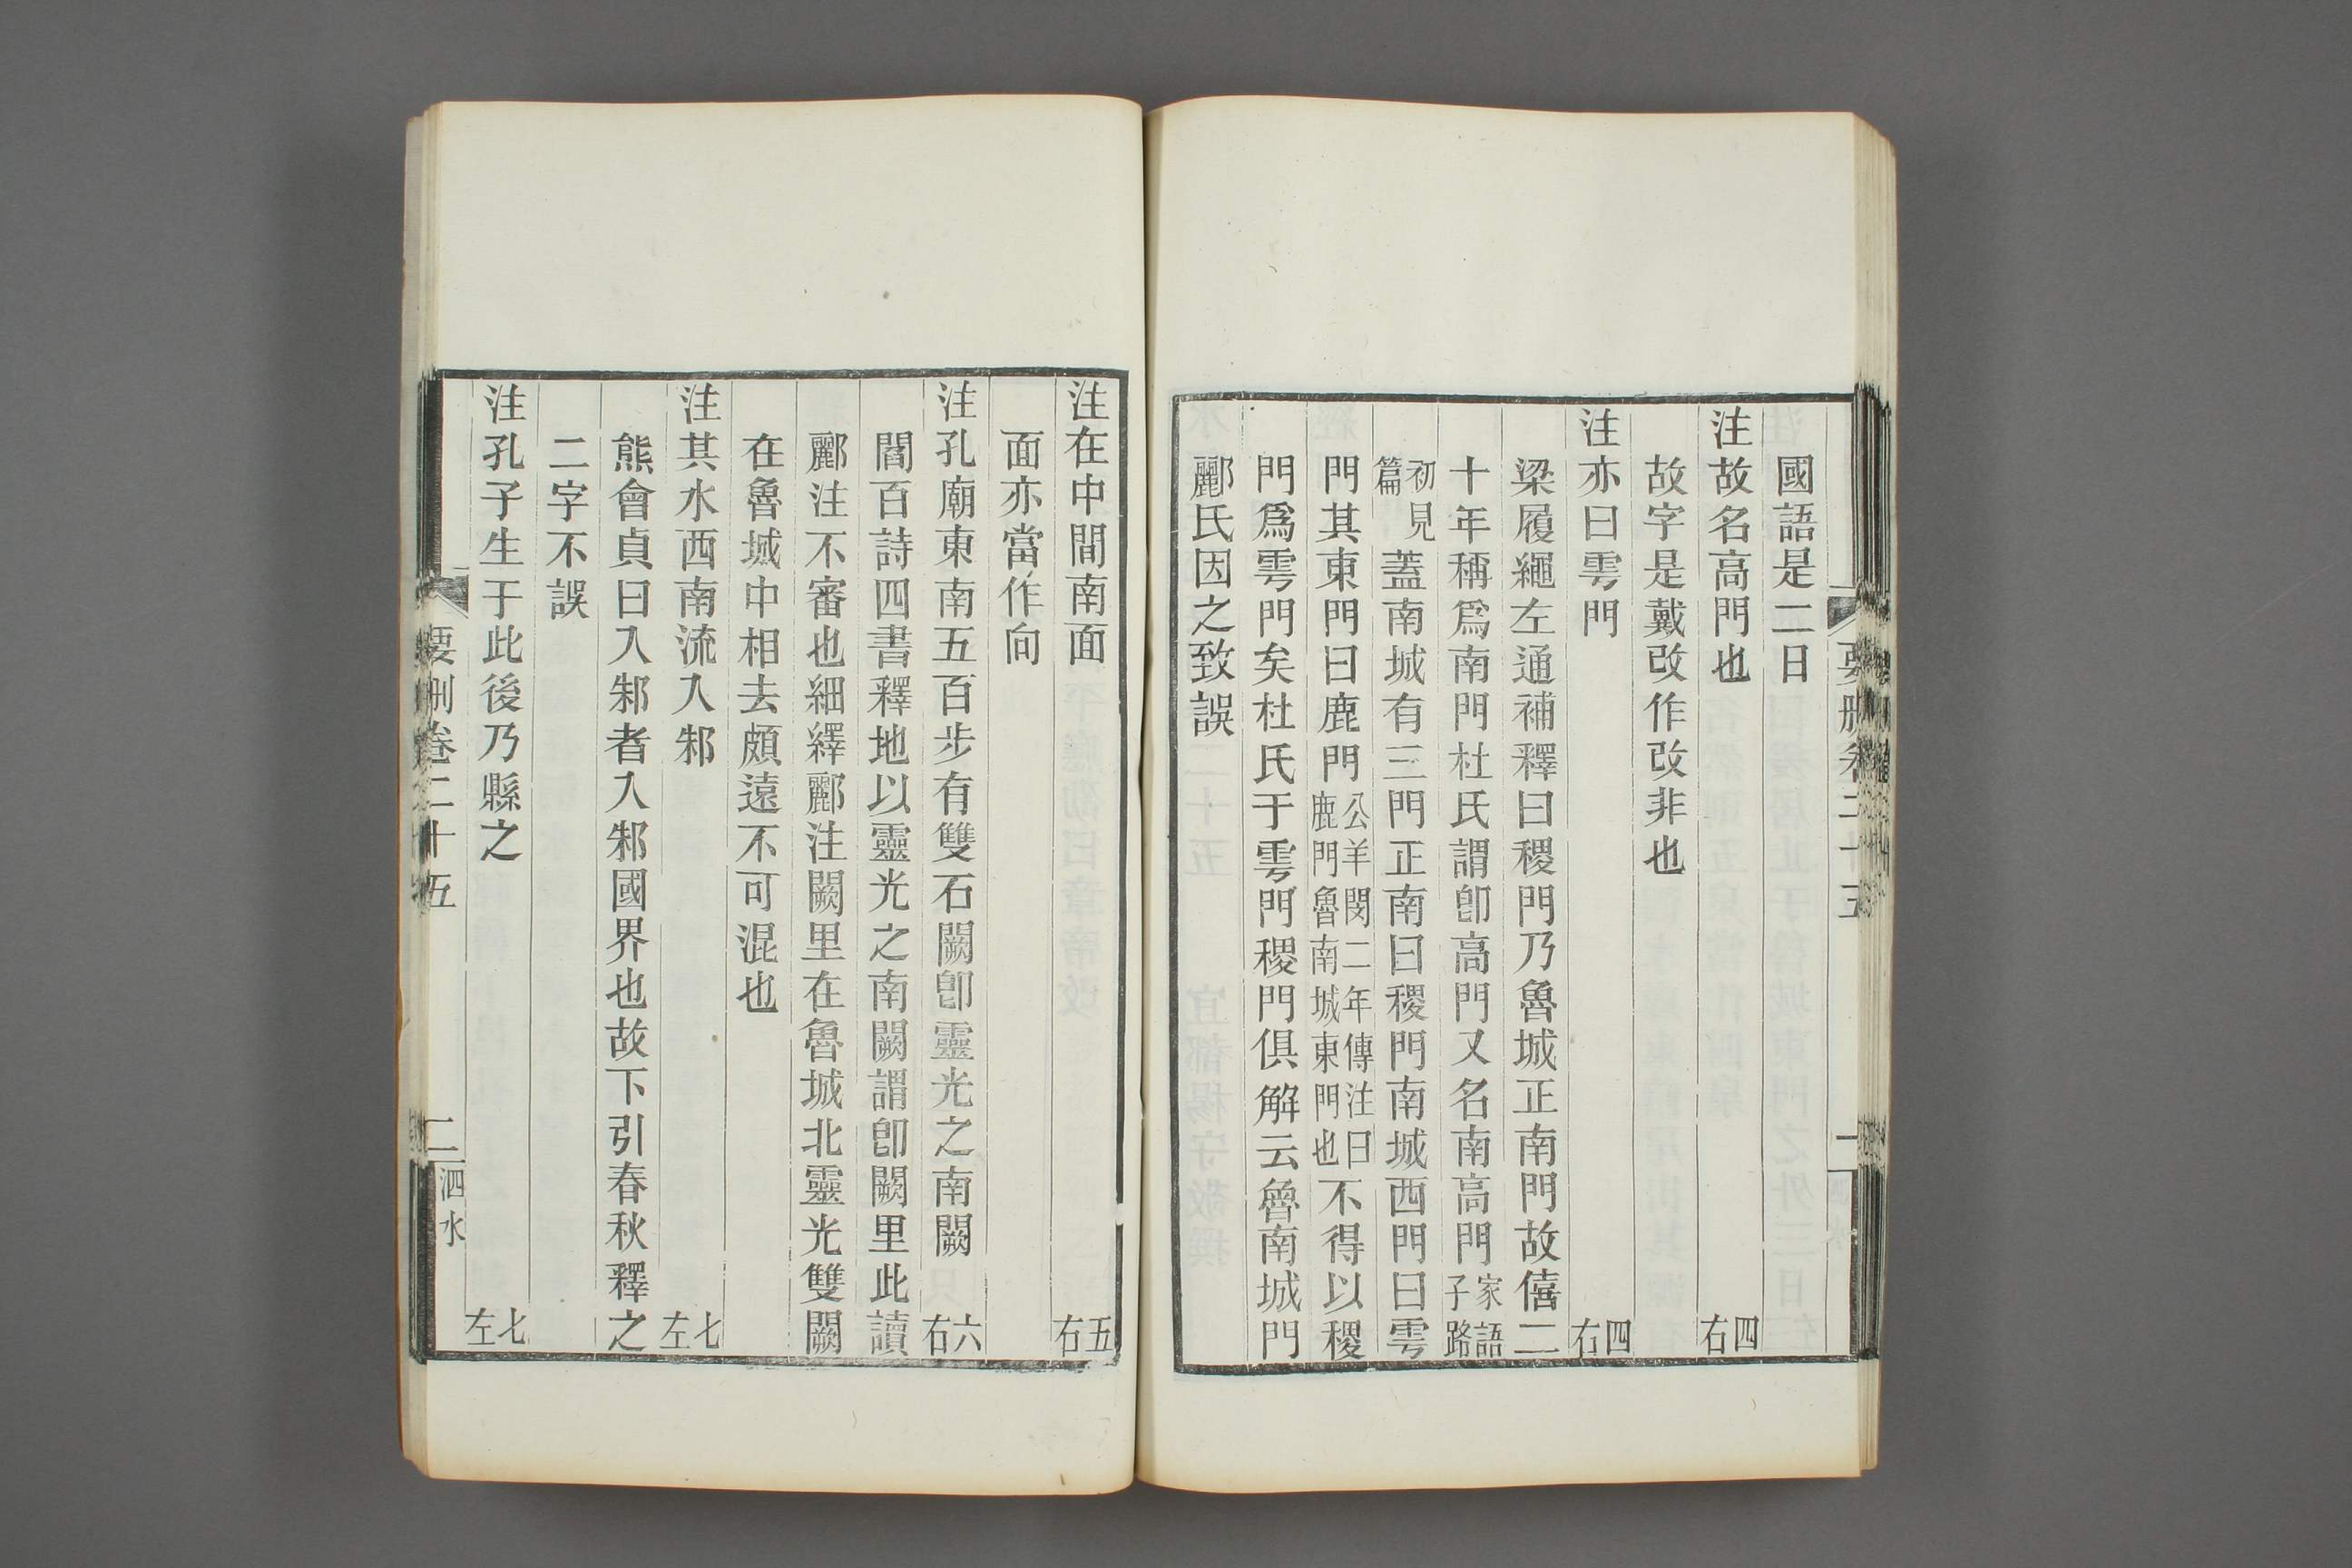 國語是二日
注故名高門也 四右
故字是戴改作改非也
注亦曰雩門 四右
梁履繩左通補釋曰稷門乃魯城正南門故僖二
十年稱爲南門杜氏謂卽高門又名南高門家語子路
初見篇蓋南城有三門正南曰稷門南城西門曰雩
門其東門曰鹿門公羊閔二年傳注曰鹿門魯南城東門也不得以稷
門爲雩門矣杜氏于雩門稷門俱解云魯南城門
酈氏因之致誤
注在中間南面 五右
面亦當作向
注孔廟東南五百步有雙石闕卽靈光之南闕 六右
閻百詩四書釋地以靈光之南闕謂卽闕里此讀
酈注不審也細繹酈注闕里在魯城北靈光雙闕
在魯城中相去頗遠不可混也
注其水西南流入邾 七左
熊會貞曰入邾者入邾國界也故下引春秋釋之
二字不誤
注孔子生于此後乃縣之 七左
要刪卷二十五 二 泗水